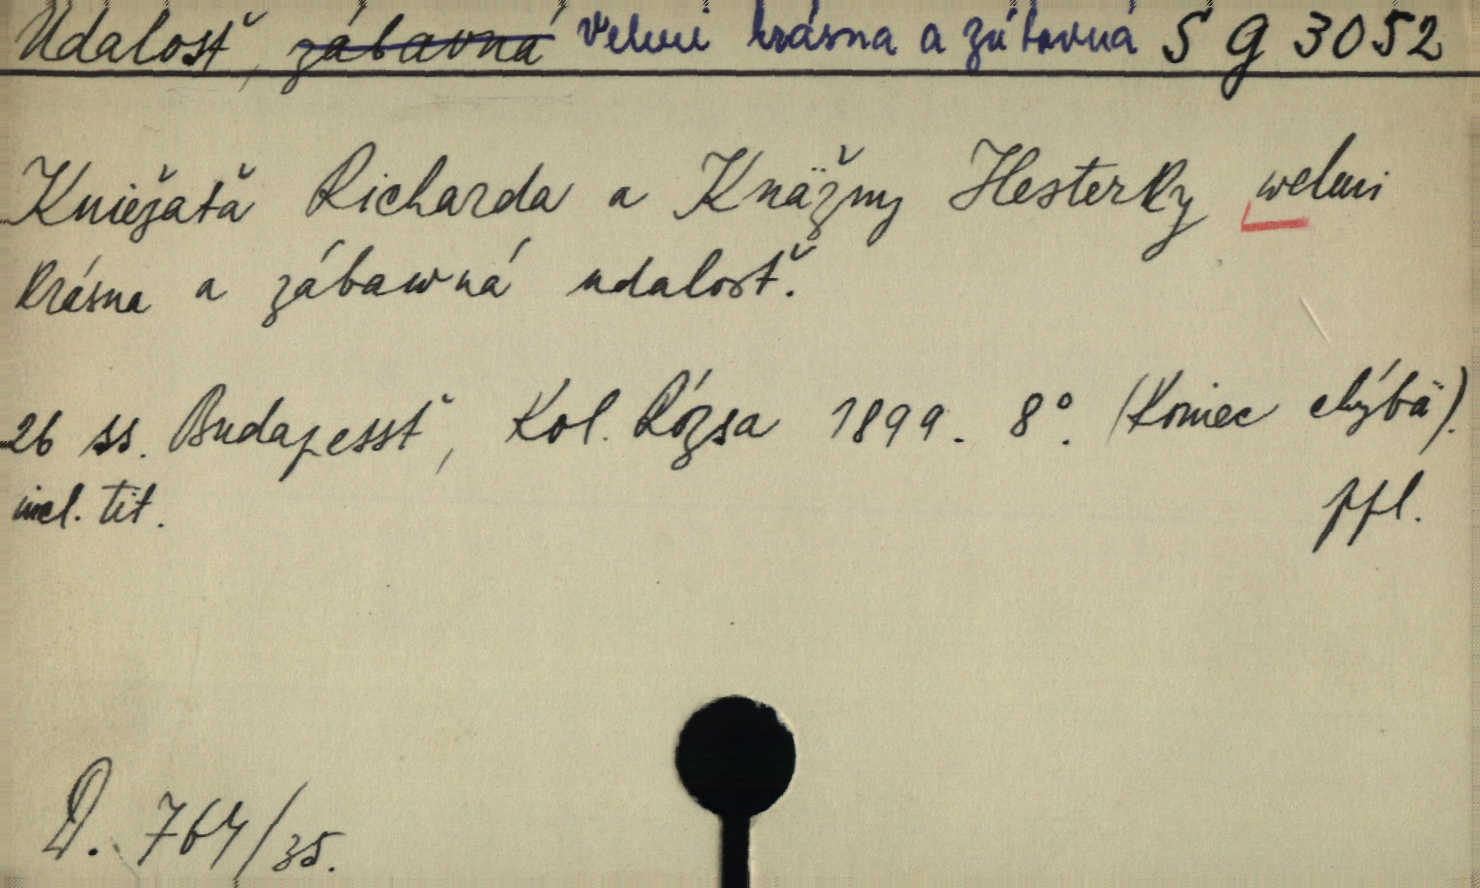 Udalosť, zábavná Velmi krásna a zábavná S G 3052
Kniežatä Richarda a Knäžny Hesterky welmi
krásna a zábawná udalosť.
26 ss. Budapessť, Kol. Rózsa 1899. 8°. (Koniec chýbä).
incl. tit. ppl.
D. 764/35.